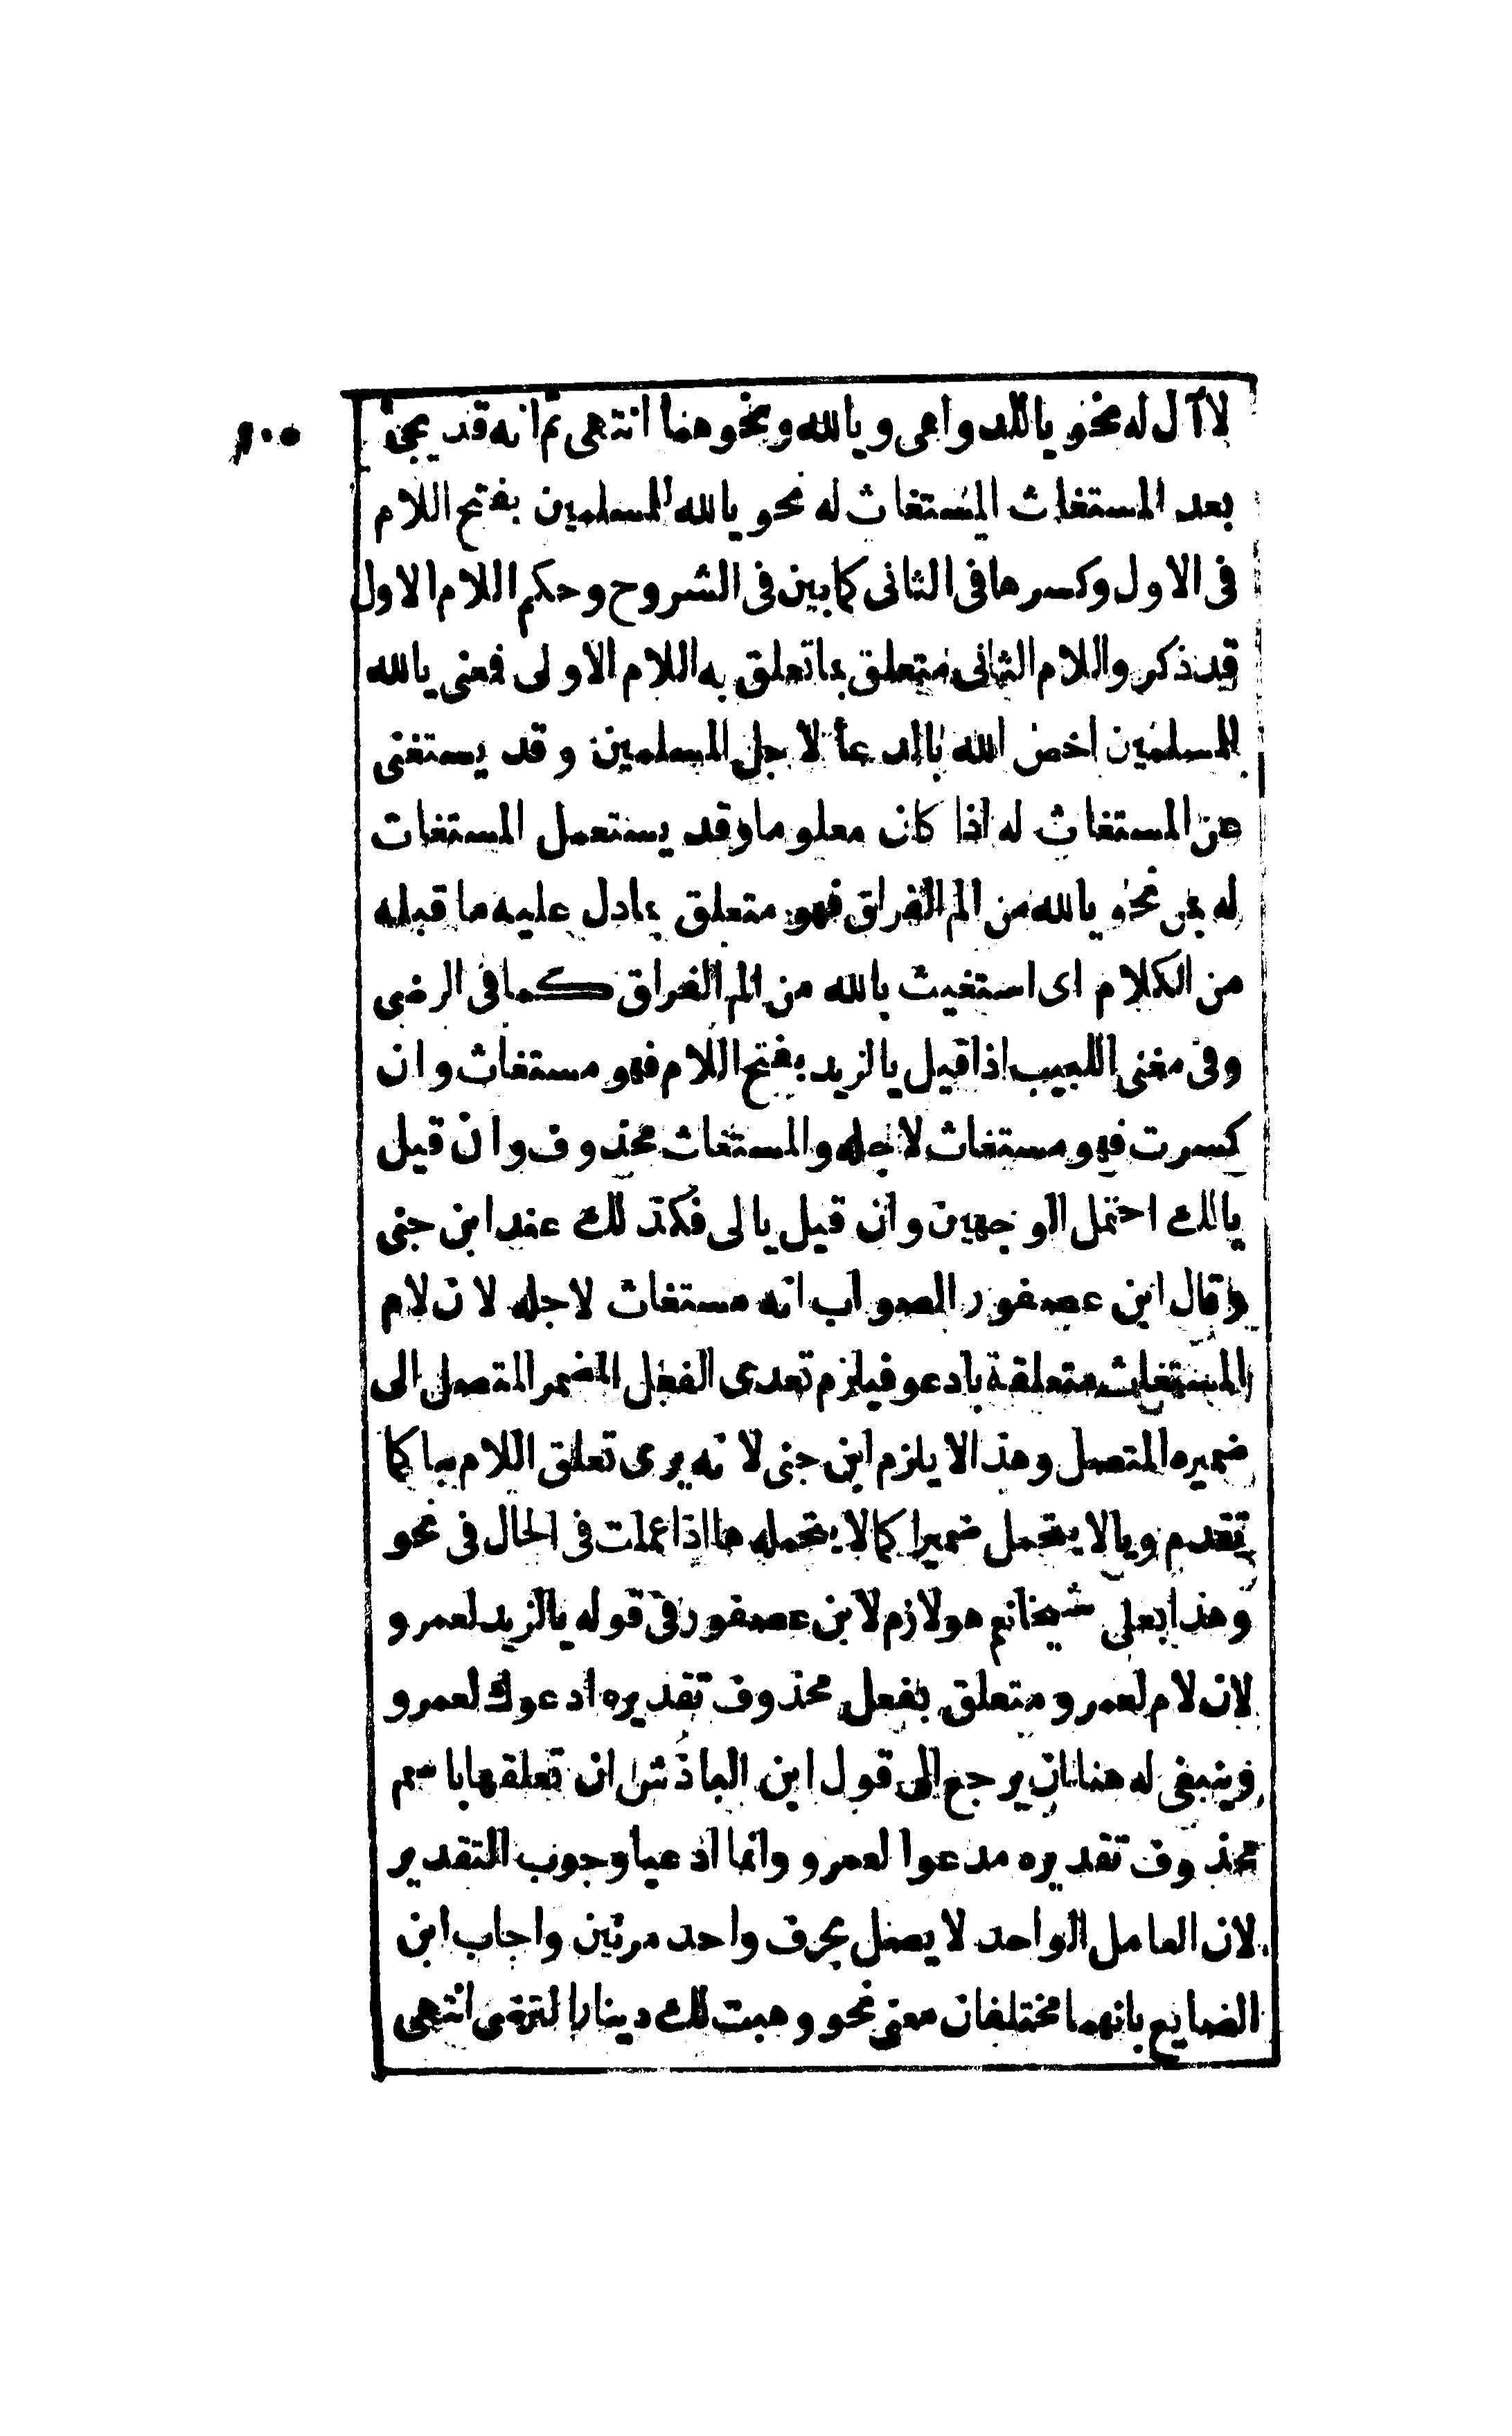 لا آل له نحو ياللدواهى ويالله ونحوهما انتهى ثم انه قد يجئ
بعد المستغاث المستغاث له نحو يالله للمسلمين بفتح اللام
فى الاول وكسرها فى الثانى كما بين فى الشروح وحكم اللام الاول
قد ذكر واللام الثانى متعلق بما تعلق به اللام الاولى فمعنى يالله
للمسلمين اخص الله بالدعأ لاجل المسلمين وقد يستغنى
عن المستغاث له اذا كان معلوما وقد يستعمل المستغاث
له بمن نحو يالله من الم الفراق فهو متعلق بمادل عليه ما قبله
من الكلام اى استغيث بالله من الم الفراق كما فى الرضى
وفى مغنى اللبيب اذا قيل يالزيد بفتح اللام فهو مستغاث وان
كسرت فهو مستغاث لاجله والمستغاث محذوف وان قيل
يالك احتمل الوجهين وان قيل يالى فكذلك عند ابن جنى
وقال ابن عصفور الصواب انه مستغاث لاجله لان لام
المستغاث متعلقة بادعو فيلزم تعدى الفعل المضمر المتصل الى
ضميره المتصل وهذا لا يلزم ابن جنى لانه يرى تعلق اللام بيا كما
تقدم ويا لا يتحمل ضميرا كما لا يتحمله ها اذا عملت فى الحال فى نحو
وهذا بعلى شيخا نعم هو لازم لابن عصفور فى قوله يالزيد لعمرو
لان لام لعمرو متعلق بفعل محذوف تقديره ادعوك لعمرو
وينبغى له هنا ان يرجع الى قول ابن الباذش ان تعلقها باسم
محذوف تقديره مدعوا لعمرو وانما ادعيا وجوب التقدير
لان العامل الواحد لا يصل بحرف واحد مرتين واجاب ابن
الضايع بانهما مختلفان معنى نحو وهبت لك دينارا لترضى انتهى